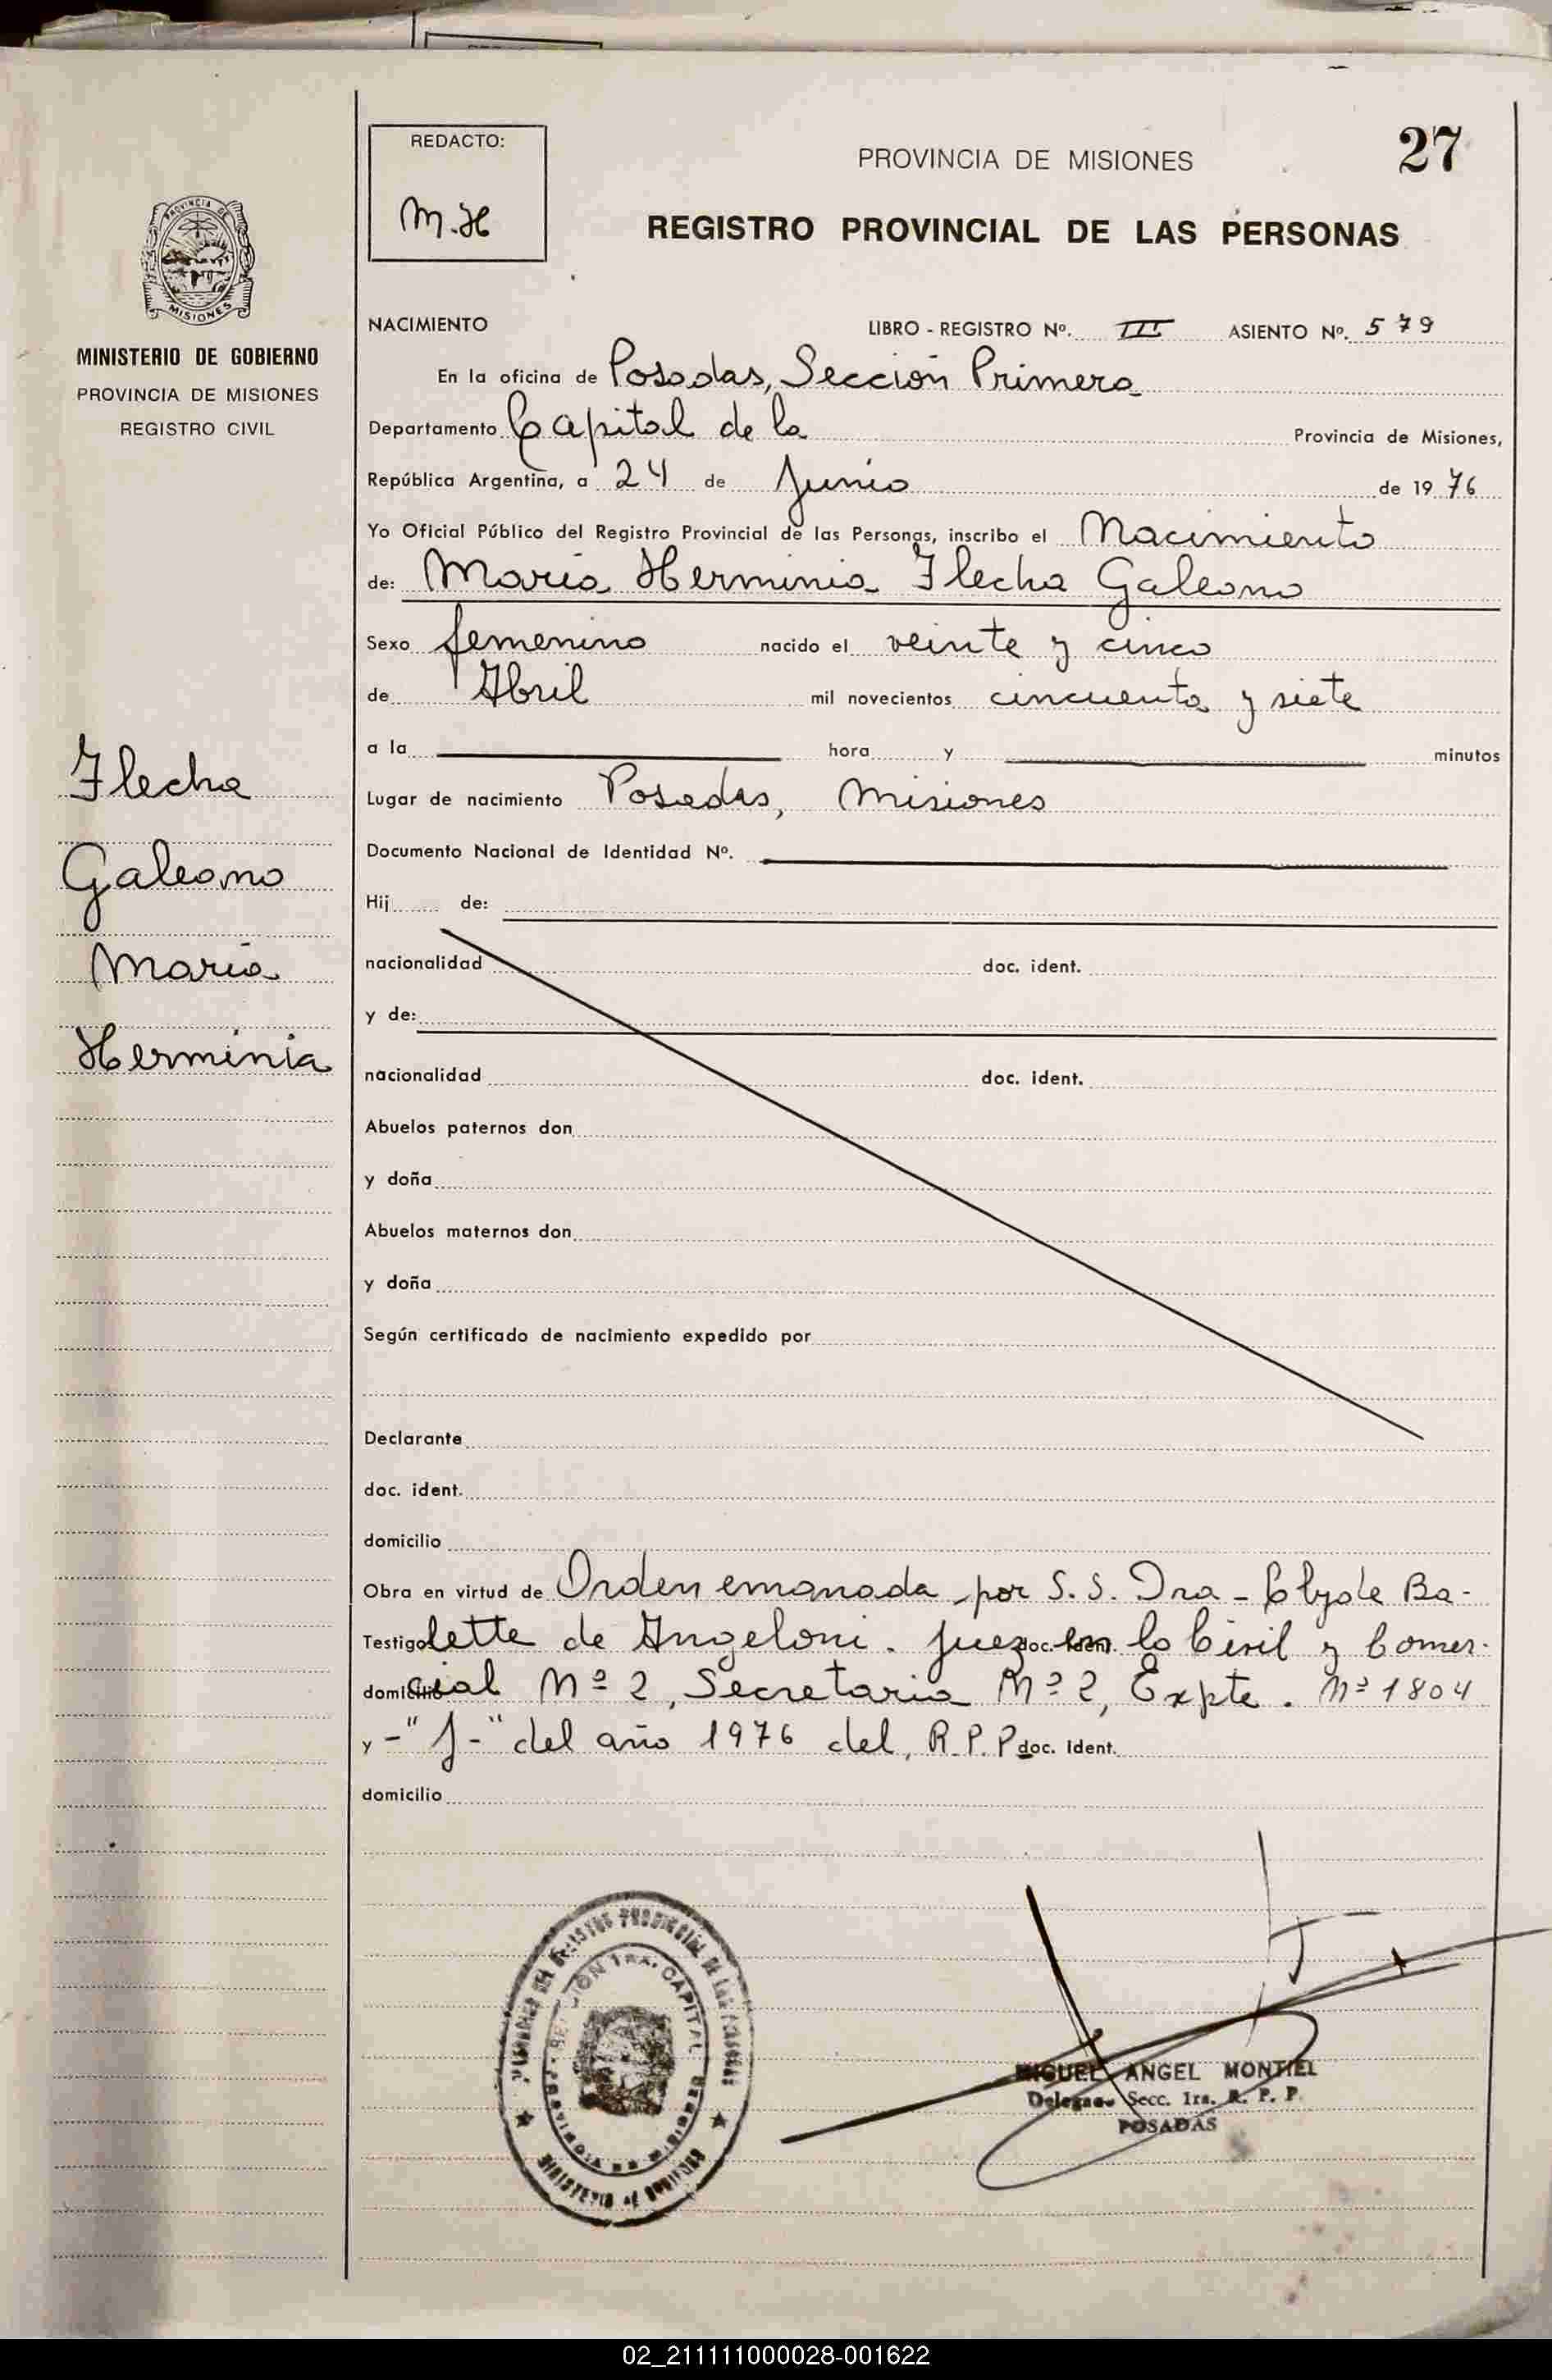 27
REDACTO:
M.H
PROVINCIA DE MISIONES
REGISTRO PROVINCIAL DE LAS PERSONAS
PROVINCIA DE
MISIONES
MINISTERIO DE GOBIERNO
PROVINCIA DE MISIONES
REGISTRO CIVIL
Flecha
Galeano
María
Herminia
NACIMIENTO LIBRO - REGISTRO Nº. III ASIENTO Nº. 579
En la oficina de Posadas, Sección Primera
Departamento Capital de la Provincia de Misiones,
República Argentina, a 24 de Junio de 1976
Yo Oficial Público del Registro Provincial de las Personas, inscribo el Nacimiento
de: María Herminia Flecha Galeano
Sexo femenino nacido el veinte y cinco
de Abril mil novecientos cincuenta y siete
a la hora y minutos
Lugar de nacimiento Posadas, Misiones
Documento Nacional de Identidad Nº.
Hij de:
nacionalidad doc. ident.
y de:
nacionalidad doc. ident.
Abuelos paternos don
y doña
Abuelos maternos don
y doña
Según certificado de nacimiento expedido por
Declarante
doc. ident.
domicilio
Obra en virtud de Orden emanada por S.S. Dra - Clyde Ba-
Testigo lette de Angeloni. Juez doc. ident. en lo Civil y Comer-
domicilio cial Nº 2, Secretaria Nº 2, Expte. Nº 1804
y -"J-" del año 1976 del, R.P.P doc. ident.
domicilio
SECCIÓN 1RA. CAPITAL
MIGUEL ANGEL MONTIEL
Delegado Secc. 1ra. R. P. P.
POSADAS
02_211111000028-001622